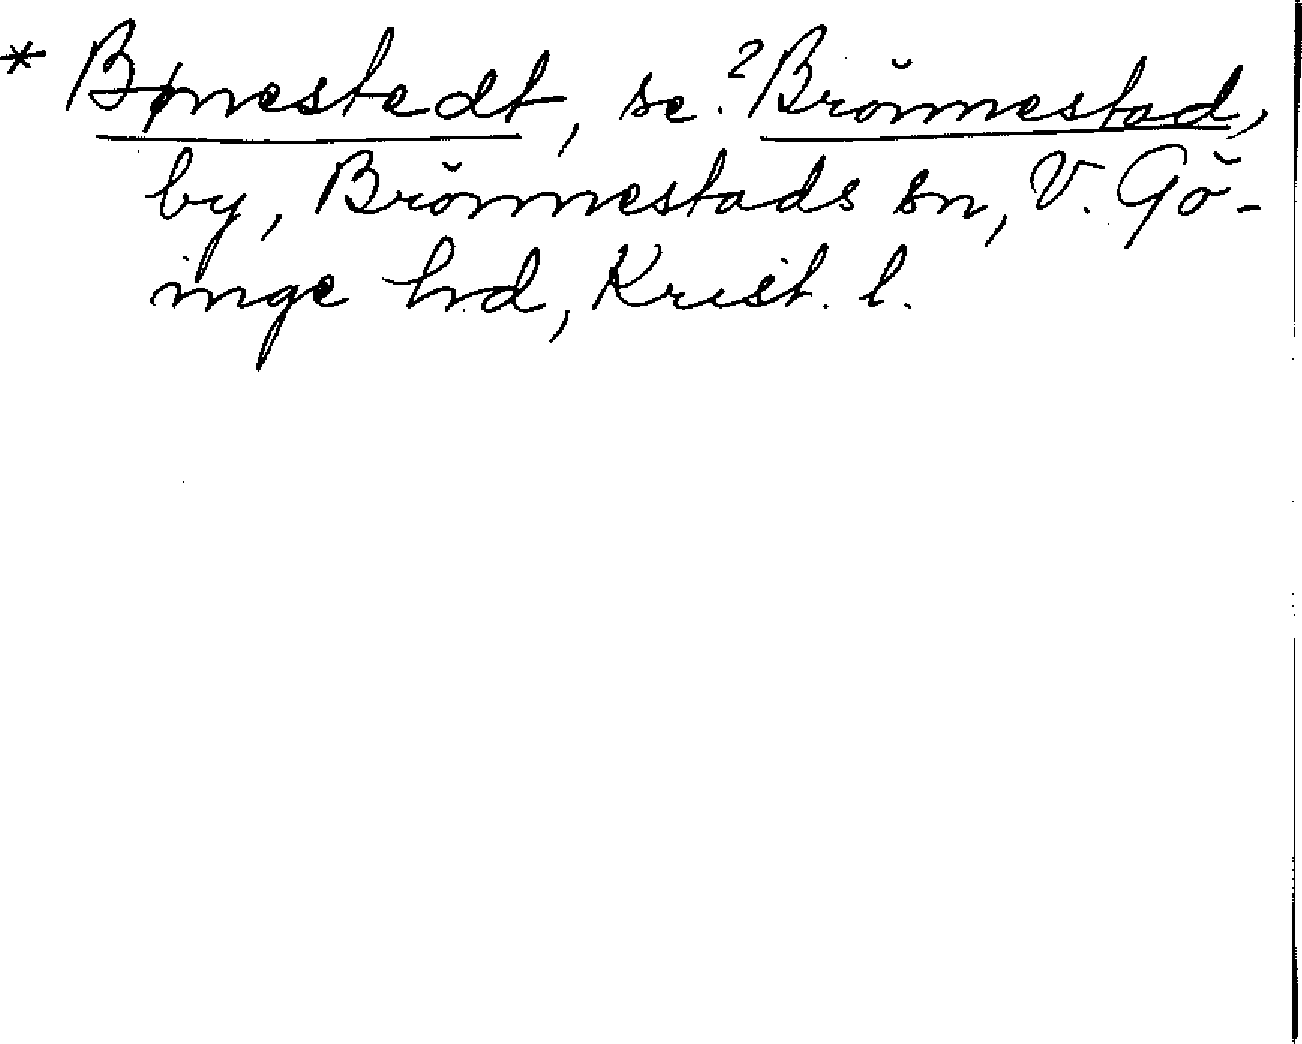 * Bønestedt, se. ²Brönnestad,
by, Brönnestads sn, V. Gö-
inge hd, Krist. l.